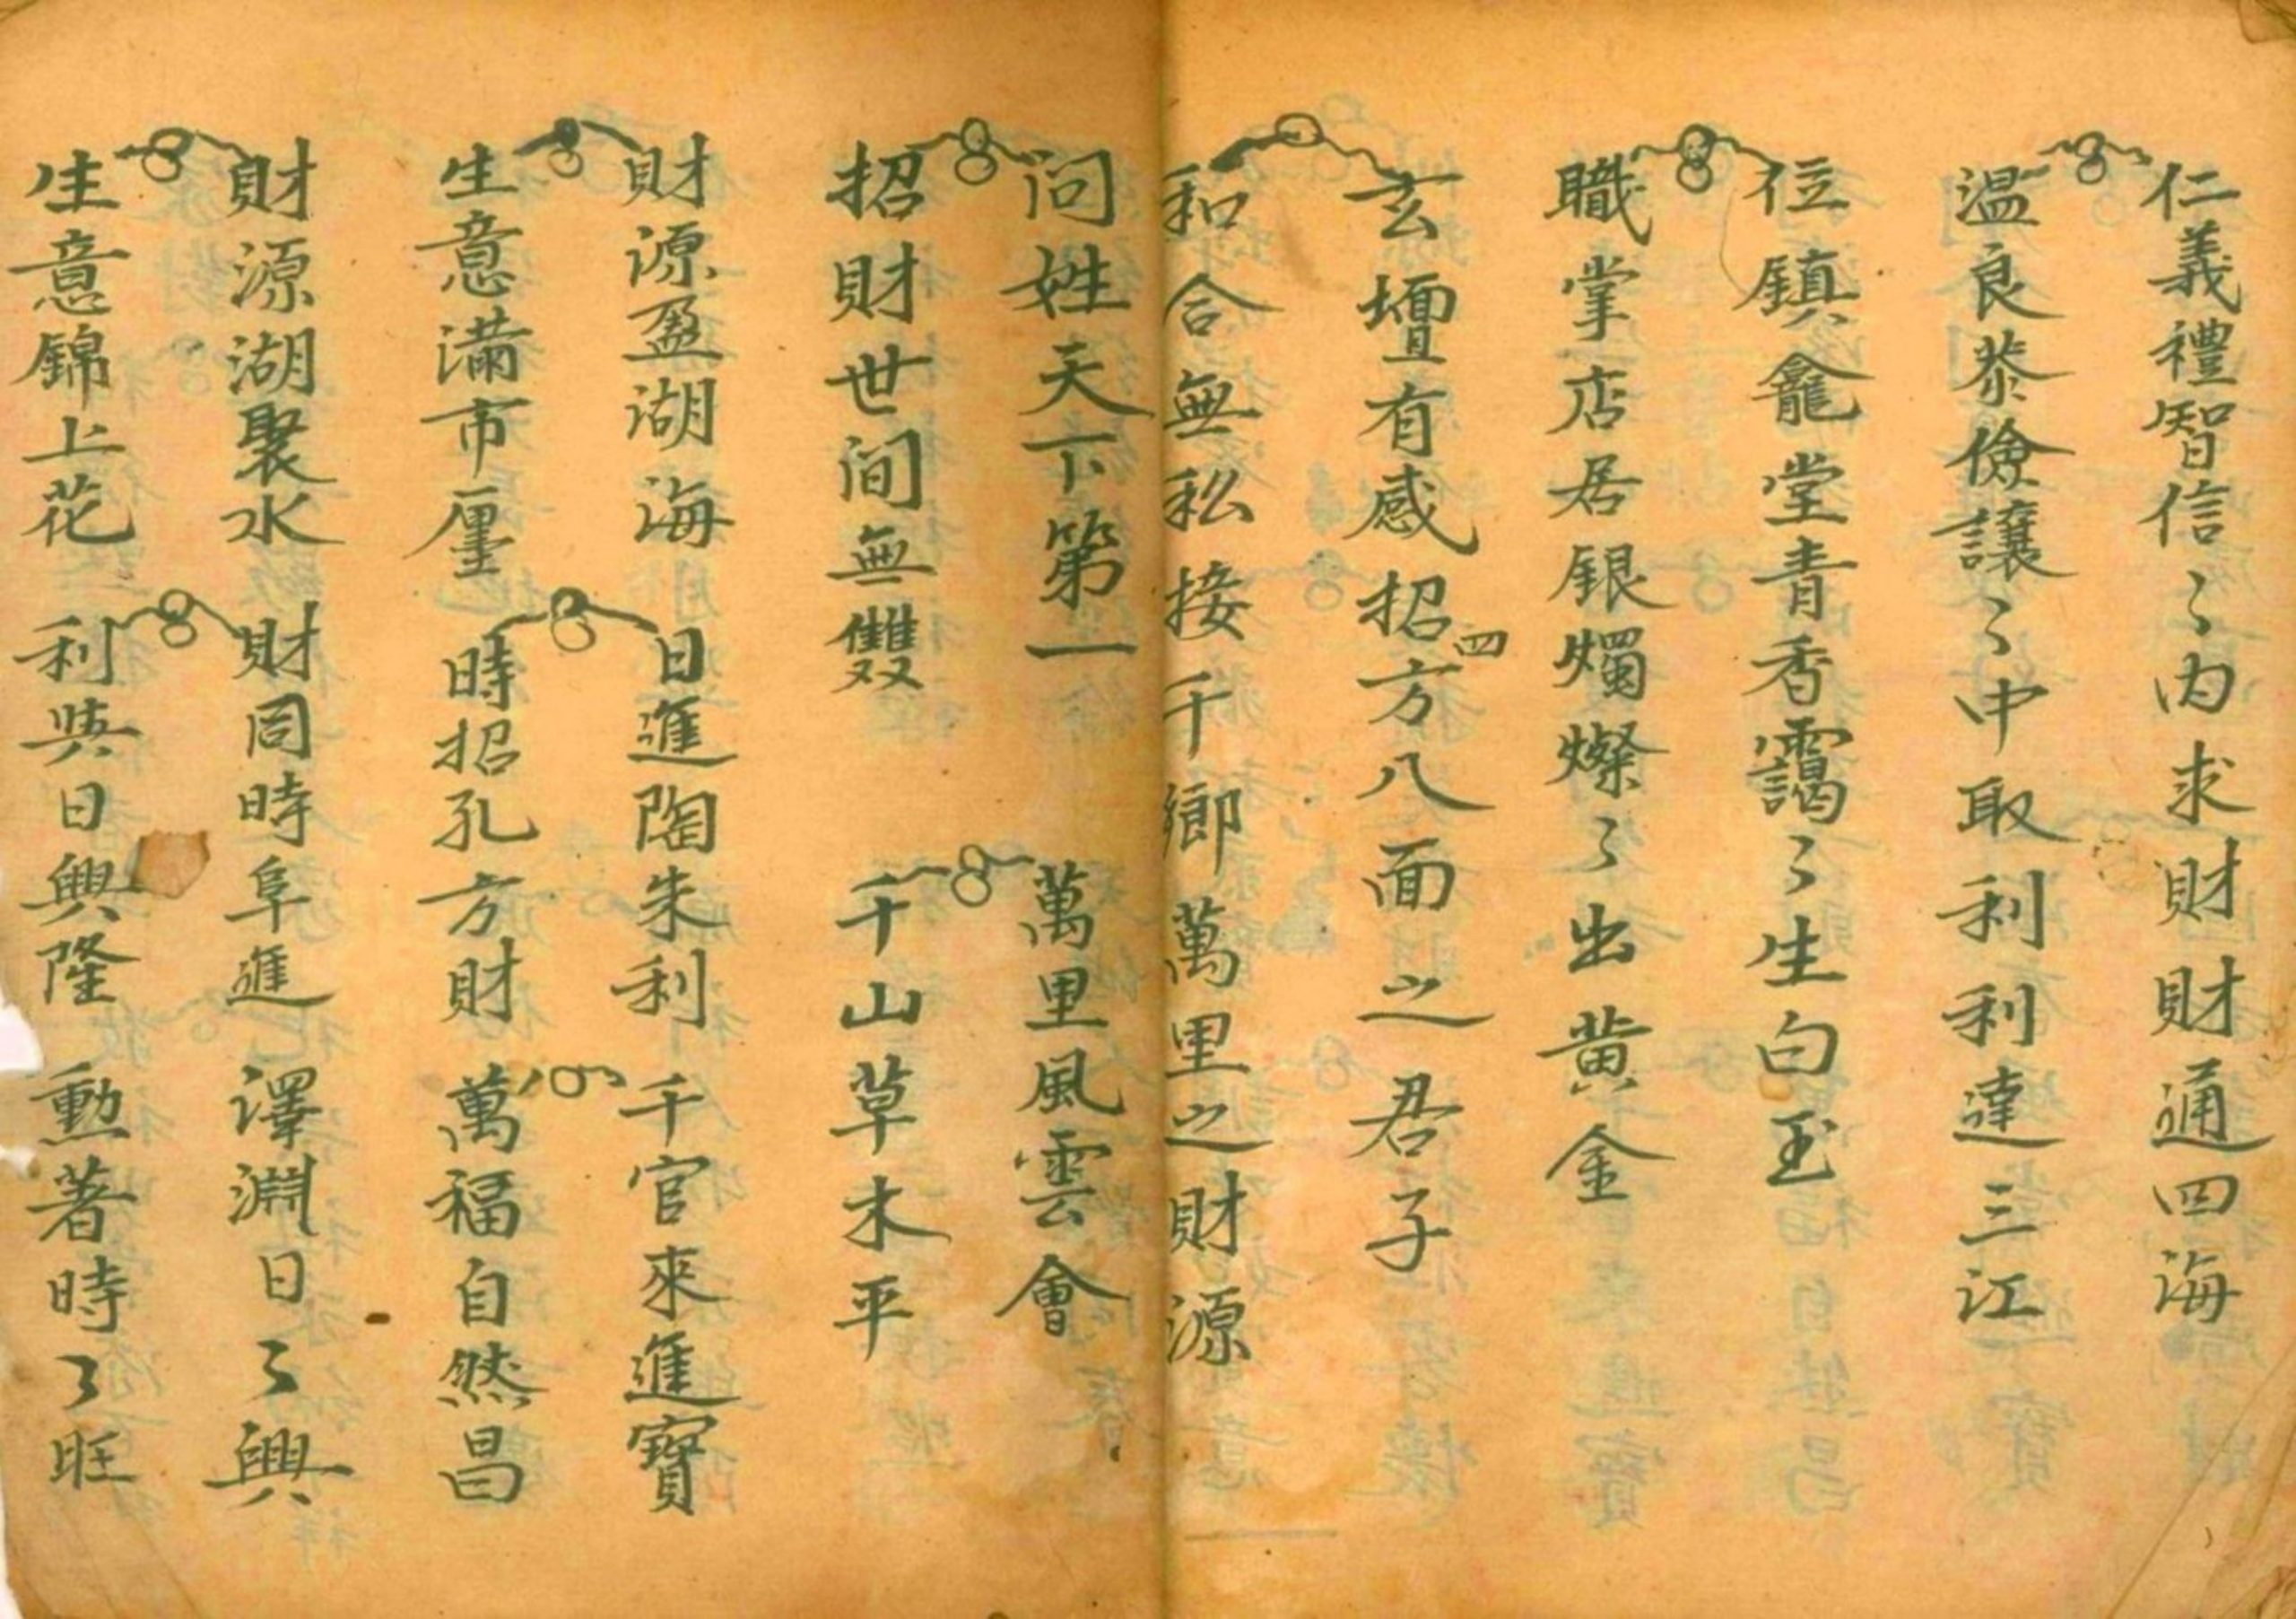 仁義禮智信〻內求財財通四海
溫良恭儉讓〻中取利利達三江
位鎮龕堂青香靄〻生白玉
職掌店居銀燭燦〻出黃金
玄壇有感招四方八面之君子
和合無私接千鄉萬里之財源
问姓天下第一
招財世间無雙
萬里風雲會
千山草木平
財源盈湖海
生意滿市廛
日進陶朱利
時招孔方財
千官來進寶
萬福自然昌
財源湖聚水
生意錦上花
財同時阜進
利與日興隆
澤淵日〻興
勳著時〻旺